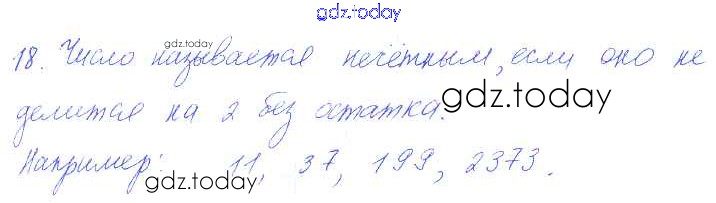 gdz.today
18. Число называется нечётным, если оно не
gdz.today
делится на 2 без остатка.
gdz.today
Например: 11, 37, 199, 2373.
gdz.today